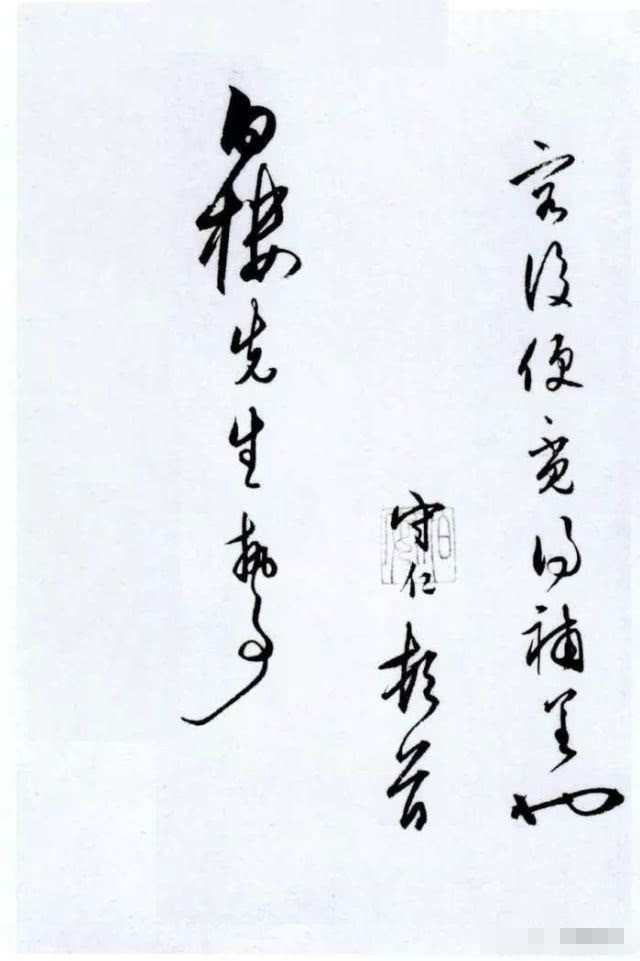 容後便覓得補呈也
守仁頓首
白樓先生執事